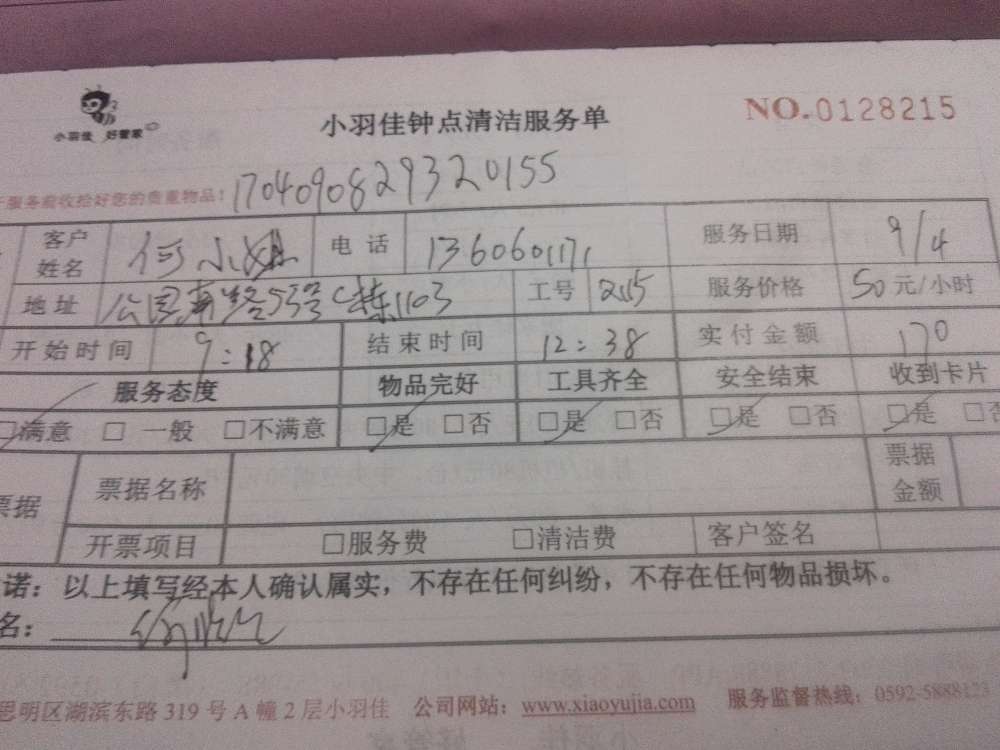 小羽佳 好管家
小羽佳钟点清洁服务单
NO.0128215
服务前收拾好您的贵重物品!
17040908293 20155
客户姓名 何小姐 电话 1360601171 服务日期 9/4
地址 公园南路53号C栋1103 工号 2115 服务价格 50元/小时
开始时间 9:18 结束时间 12:38 实付金额 170
服务态度 物品完好 工具齐全 安全结束 收到卡片
□满意 □一般 □不满意 □是 □否 □是 □否 □是 □否 □是 □否
票据 票据名称 票据金额
开票项目 □服务费 □清洁费 客户签名
诺:以上填写经本人确认属实,不存在任何纠纷,不存在任何物品损坏。
名:
思明区湖滨东路 319 号 A 幢 2 层小羽佳 公司网站:www.xiaoyujia.com 服务监督热线:0592-5888123